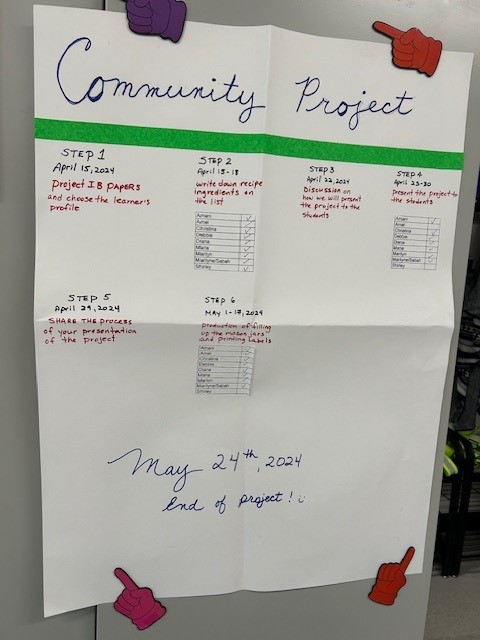 Community Project
STEP 1
April 15, 2024
Project IB PAPERS
and choose the learner's
profile
STEP 2
April 15-18
write down recipe
ingredients on
the list
Amani
Amal
Christina
Debbie
Diana
Maria
Marilyn
Marilyne/Sabah
Shirley
STEP 3
April 22, 2024
Discussion on
how we will present
the project to the
students
STEP 4
April 23-30
Present the project to
the students
Amani
Amal
Christina
Debbie
Diana
Maria
Marilyn
Marilyne/Sabah
Shirley
STEP 5
April 29, 2024
SHARE THE process
of your presentation
of the project
STEP 6
MAY 1-17, 2024
production of filling
up the mason jars
and printing Labels
Amani
Amal
Christina
Debbie
Diana
Maria
Marilyn
Marilyne/Sabah
Shirley
May 24th, 2024
End of project!